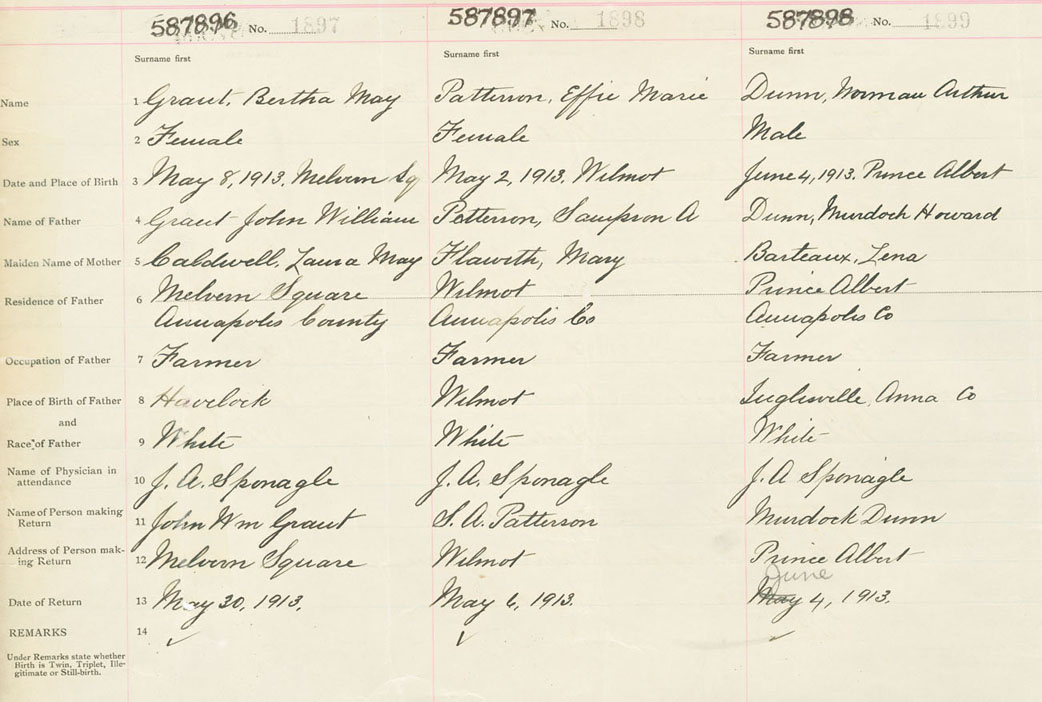 587896 No. 1897 587897 No. 1898 587898 No. 1899
Surname first Surname first Surname first
Name 1 Grant, Bertha May Patterson, Effie Marie Dunn, Norman Arthur
Sex 2 Female Female Male
Date and Place of Birth 3 May 8, 1913. Melvern Sq May 2, 1913. Wilmot June 4, 1913. Prince Albert
Name of Father 4 Grant John William Patterson, Sampson A Dunn, Murdoch Howard
Maiden Name of Mother 5 Caldwell, Laura May Mary Barteaux, Lena
Residence of Father 6 Melvern Square Wilmot Prince Albert
Annapolis County Annapolis Co Annapolis Co
Occupation of Father 7 Farmer Farmer Farmer
Place of Birth of Father 8 Havelock Wilmot Inglisville, Anna Co
and
Race of Father 9 White White White
Name of Physician in
attendance 10 J. A. Sponagle J. A. Sponagle J. A Sponagle
Name of Person making
Return 11 John Wm Grant S. A. Patterson Murdock Dunn
Address of Person mak-
ing Return 12 Melvern Square Wilmot Prince Albert
June
Date of Return 13 May 30, 1913. May 6, 1913. May 4, 1913.
REMARKS 14
Under Remarks state whether
Birth is Twin, Triplet, Ille-
gitimate or Still-birth.